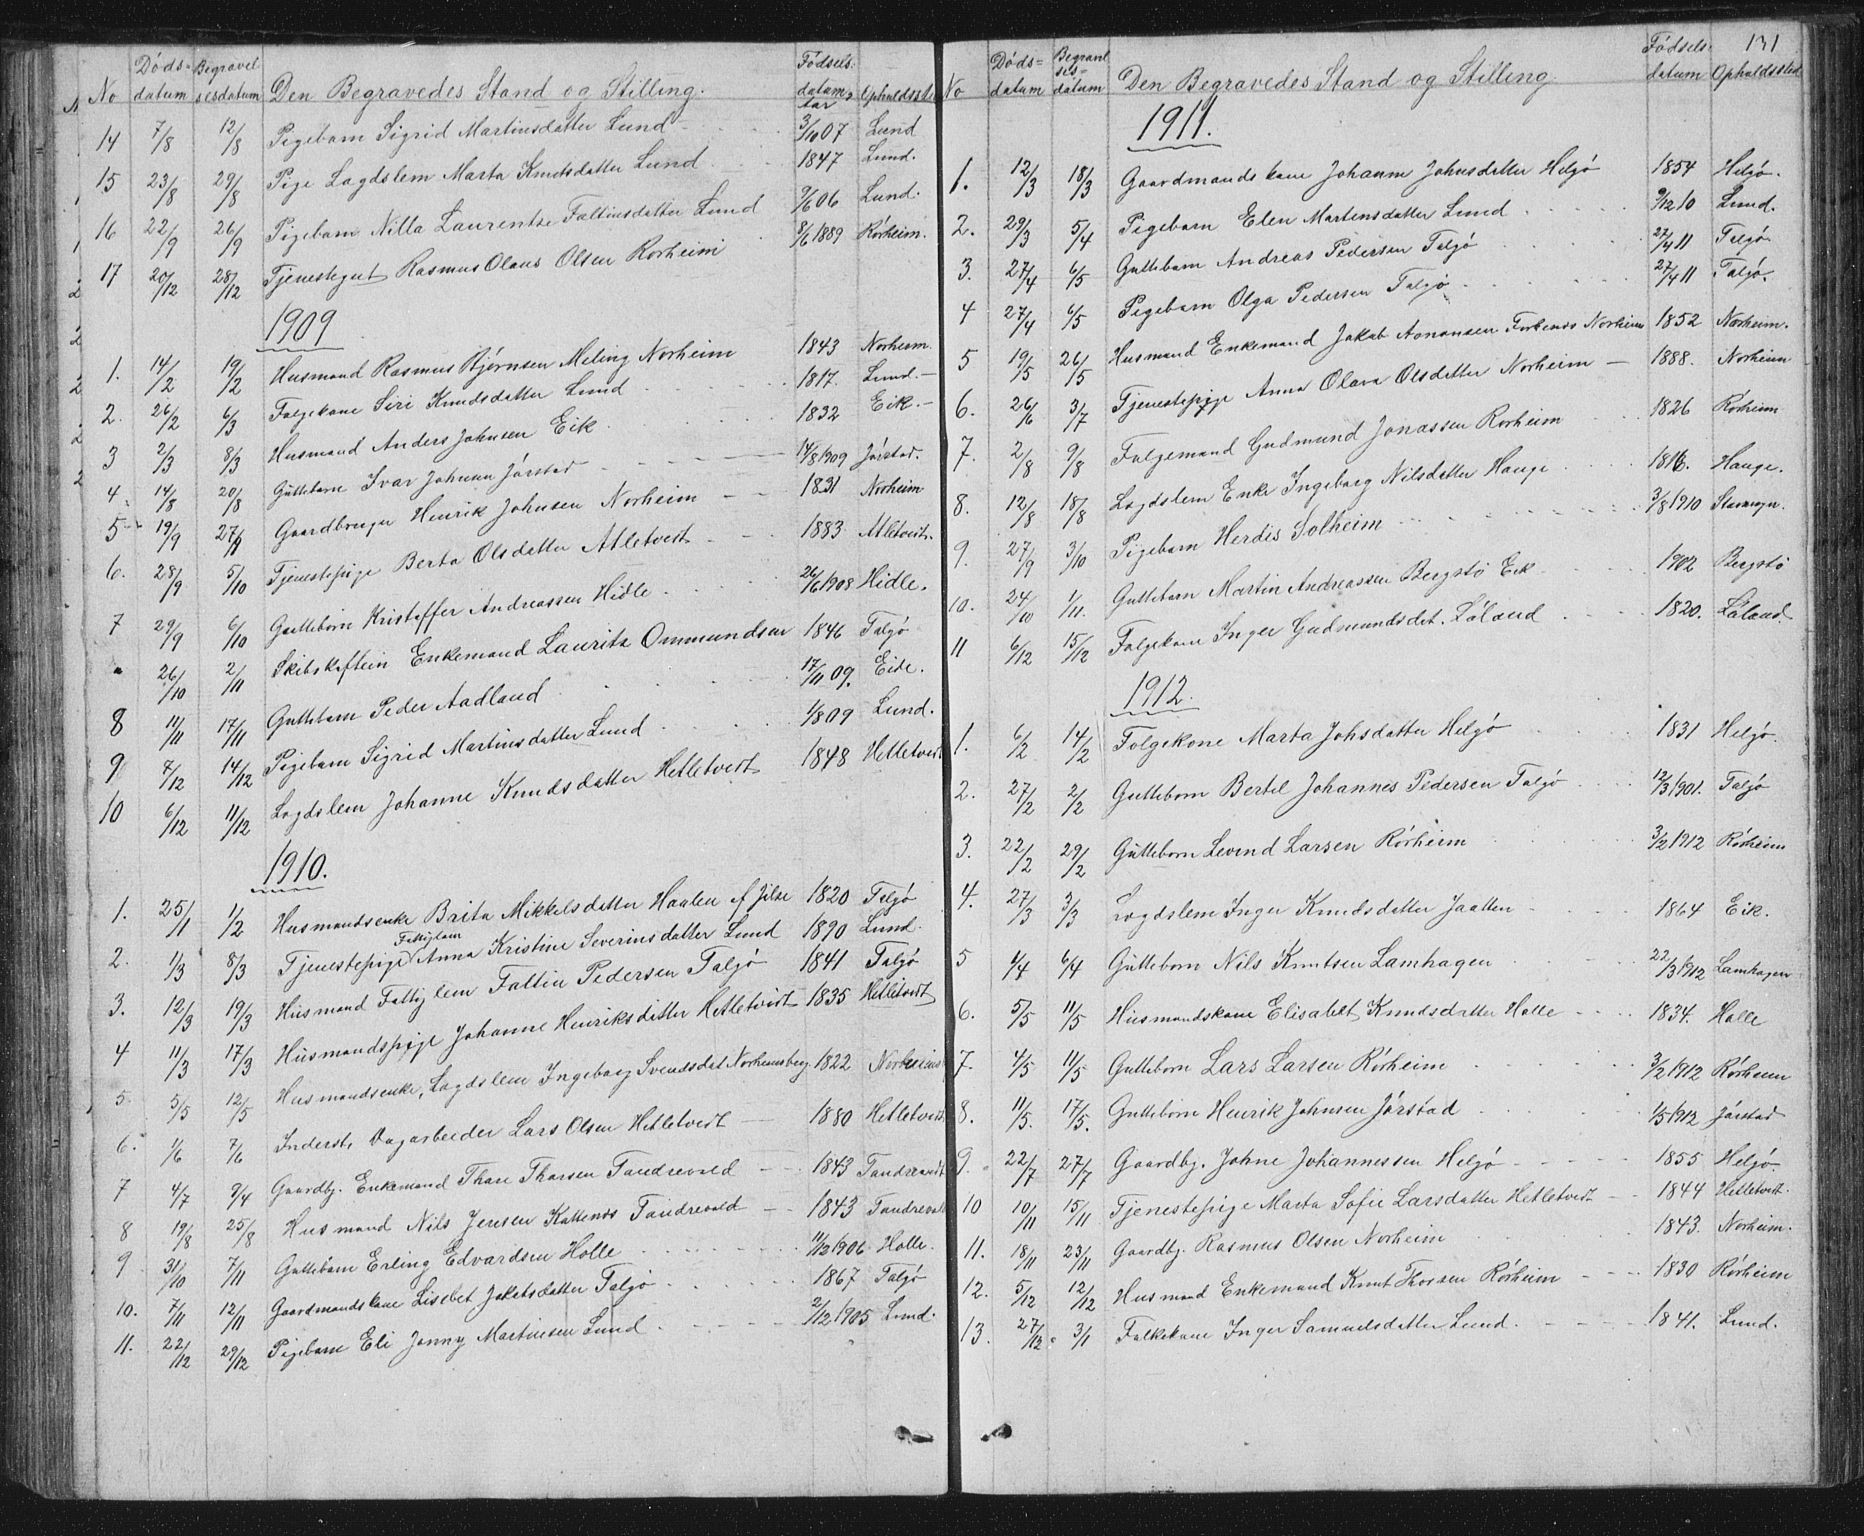 No Døds-datum Begravelsesdatum Den Begravedes Stand og Stilling. Fødselsdatum, aar Opholdsst
14 7/8 12/8 Pigebarn Sigrid Martinsdatter Lund 3/10 07 Lund
15 23/8 29/8 Pige Lagdslem Marta Knutsdatter Lund 1847 Lund.
16 22/9 26/9 Pigebarn Nilla Laurentse Faltinsdatter Lund 7/6 06 Lund.
17 20/12 28/12 Tjenestegut Rasmus Olaus Olsen Rørheim 8/6 1889 Rørheim.
1909
1. 14/2 19/2 Husmand Rasmus Bjørnsen Meling Norheim 1843 Norheim.
2. 26/2 6/3 Folgekone Siri Knudsdatter Lund 1817. Lund.
3 2/3 8/3 Husmand Anders Johnsen Eik 1832 Eik.
4. 14/8 20/8 Guttebarn Ivar Johnsen Jørstad 14/8 1909 Jørstad.
5 19/9 27/9 Gaardbruger Henrik Johnsen Norheim 1831 Norheim
6. 28/9 5/10 Tjenestepige Berta Olsdatter Atletveit 1883 Atletveit.
7 29/9 6/10 Guttebørn Kristoffer Andreassen Hidle 26/6 1908 Hidle.
" 26/10 2/11 Skibskaftein Enkemand Laurits Ommundsen 1846 Talgø
8 11/11 17/11 Guttebarn Peder Aadland 17/11 09. Eide.
9 7/12 14/12 Pigebarn Sigrid Martinsdatter Lund 1/8 09 Lund.
10 6/12 11/12 Lagdslem Johanne Knudsdatter Hetletveit 1848 Hetletveit
1910.
1. 25/1 1/2 Husmandsenke Brita Mikkelsdatter Haalen af Jelse 1820 Talgø
2. 1/3 8/3 Tjenestepige Fattiglem Anna Kristine Severinsdatter Lund 1890 Lund.
3. 12/3 19/3 Husmand Fattiglem Faltin Pedersen Talgø 1841 Talgø
4 11/3 17/3 Husmandspige Johanne Henriksdatter Hetletveit 1835 Hetletveit
5 5/5 12/5 Husmandsenke, Lagdslem Ingeborg Svendsdat Norheimsberg 1822 Norheims
6. 1/6 7/6 Inderst, Dagarbeider Lars Olsen Hetletveit 1880 Hetletveit
7 4/7 9/4 Gaardbg. Enkemand Thore Thorsen Tandrevold 1843 Tandrevold
8 19/8 25/8 Husmand Nils Jensen Kattenes Tandrevold 1843 Tandrevol
9 31/10 7/11 Guttebarn Erling Edvardsen Holle 11/12 1906 Holle.
10. 7/11 12/11 Gaardmandskone Lisebet Jakobsdatter Talgø 1867 Talgø
11. 22/12 29/12 Pigebarn Eli Jonny Martinsen Lund 2/12 1905 Lund.
131
No Døds-datum Begravelses-datum Den Begravedes Stand og Stilling Fødsels-datum Opholdssted
1911.
1. 12/3 18/3 Gaardmandskone Johanne Johnsdatter Helgø 1854 Helgø.
2. 29/3 5/4 Pigebarn Elen Martinsdatter Lund 9/12 10 Lund.
3. 27/4 6/5 Guttebarn Andreas Pedersen Talgø 27/4 11 Talgø
4 27/4 6/5 Pigebarn Olga Pedersen Talgø 27/4 11 Talgø.
5 19/5 26/5 Husmand Enkemand Jakob Aanansen Norheim 1852 Norheim.
6. 26/6 3/7 Tjenestepige Anna Olava Olsdatter Norheim 1888. Norheim
7. 2/8 9/8 Folgemand Gudmund Jonassen Rørheim 1826 Rørheim
8. 12/8 18/8 Lagdslem Enke Ingeborg Nilsdatter Hauge 1816. Hauge.
9. 27/9 3/10 Pigebarn Herdis Solheim 3/8 1910 Stavanger.
10. 24/10 1/11. Guttebarn Martin Andreassen Bergstø Eik 1902 Bergstø
11 6/12 15/12 Folgekone Inger Gudmundsdat. Løland 1820. Løland
1912.
1. 6/2 14/2 Folgekone Marta Johsdatter Helgø 1831 Helgø.
2. 27/2 2/2 Guttebørn Bertel Johannes Pedersen Talgø 12/3 1901. Talgø
3. 22/2 29/2 Guttebørn Levend Larsen Rørheim 3/2 1912 Rørheim
4. 27/3 3/3 Lagdslem Inger Knudsdatter Jaatten 1864 Eik.
5 1/4 6/4 Guttebørn Nils Knutsen Lamhagen 22/3 1912 Lamhagen
6. 5/5 11/5 Husmandskone Elisabet Knudsdatter Holle 1834. Holle
7. 4/5 11/5 Guttebørn Lars Larsen Rørheim 3/2 1912 Rørheim
8. 11/5. 17/5. Guttebørn Henrik Johnsen Jørstad 1/5 1912 Jørstad
9. 22/7 27/7 Gaardbg. Johne Johannessen Helgø 1855 Helgø
10 10/11 15/11 Tjenestepige Marta Sofie Larsdatter Hetletveit 1844 Hetletveit.
11. 18/11 23/11 Gaardbg. Rasmus Olsen Norheim 1843. Norheim.
12. 5/12 12/12 Husmand Enkemand Knut Thorsen Rørheim 1830 Rørheim
13. 27/12 3/1 Falkekone Inger Samuelsdatter Lund. 1841. Lund.